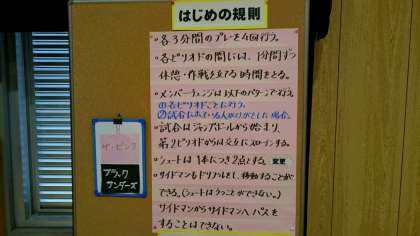 はじめの規則
○各3分間のプレーを4回行う。
○各ピリオドの間には、1分間ずつ
休憩・作戦を立てる時間をとる。
○メンバーチェンジは以下のパターンで行う。
①各ピリオドごとに行う。
②試合に出ている人がけがをした場合。
○試合はジャンプボールから始まり、
第2ピリオドからは交互にスローインする。
○シュートは1本につき2点とする。変更
○サイドマンもドリブルをし、移動することが
できる。(シュートはうつことができない。)
サイドマンからサイドマンへパスを
することはできない。
ザ・ピンク
ブラック
サンダーズ